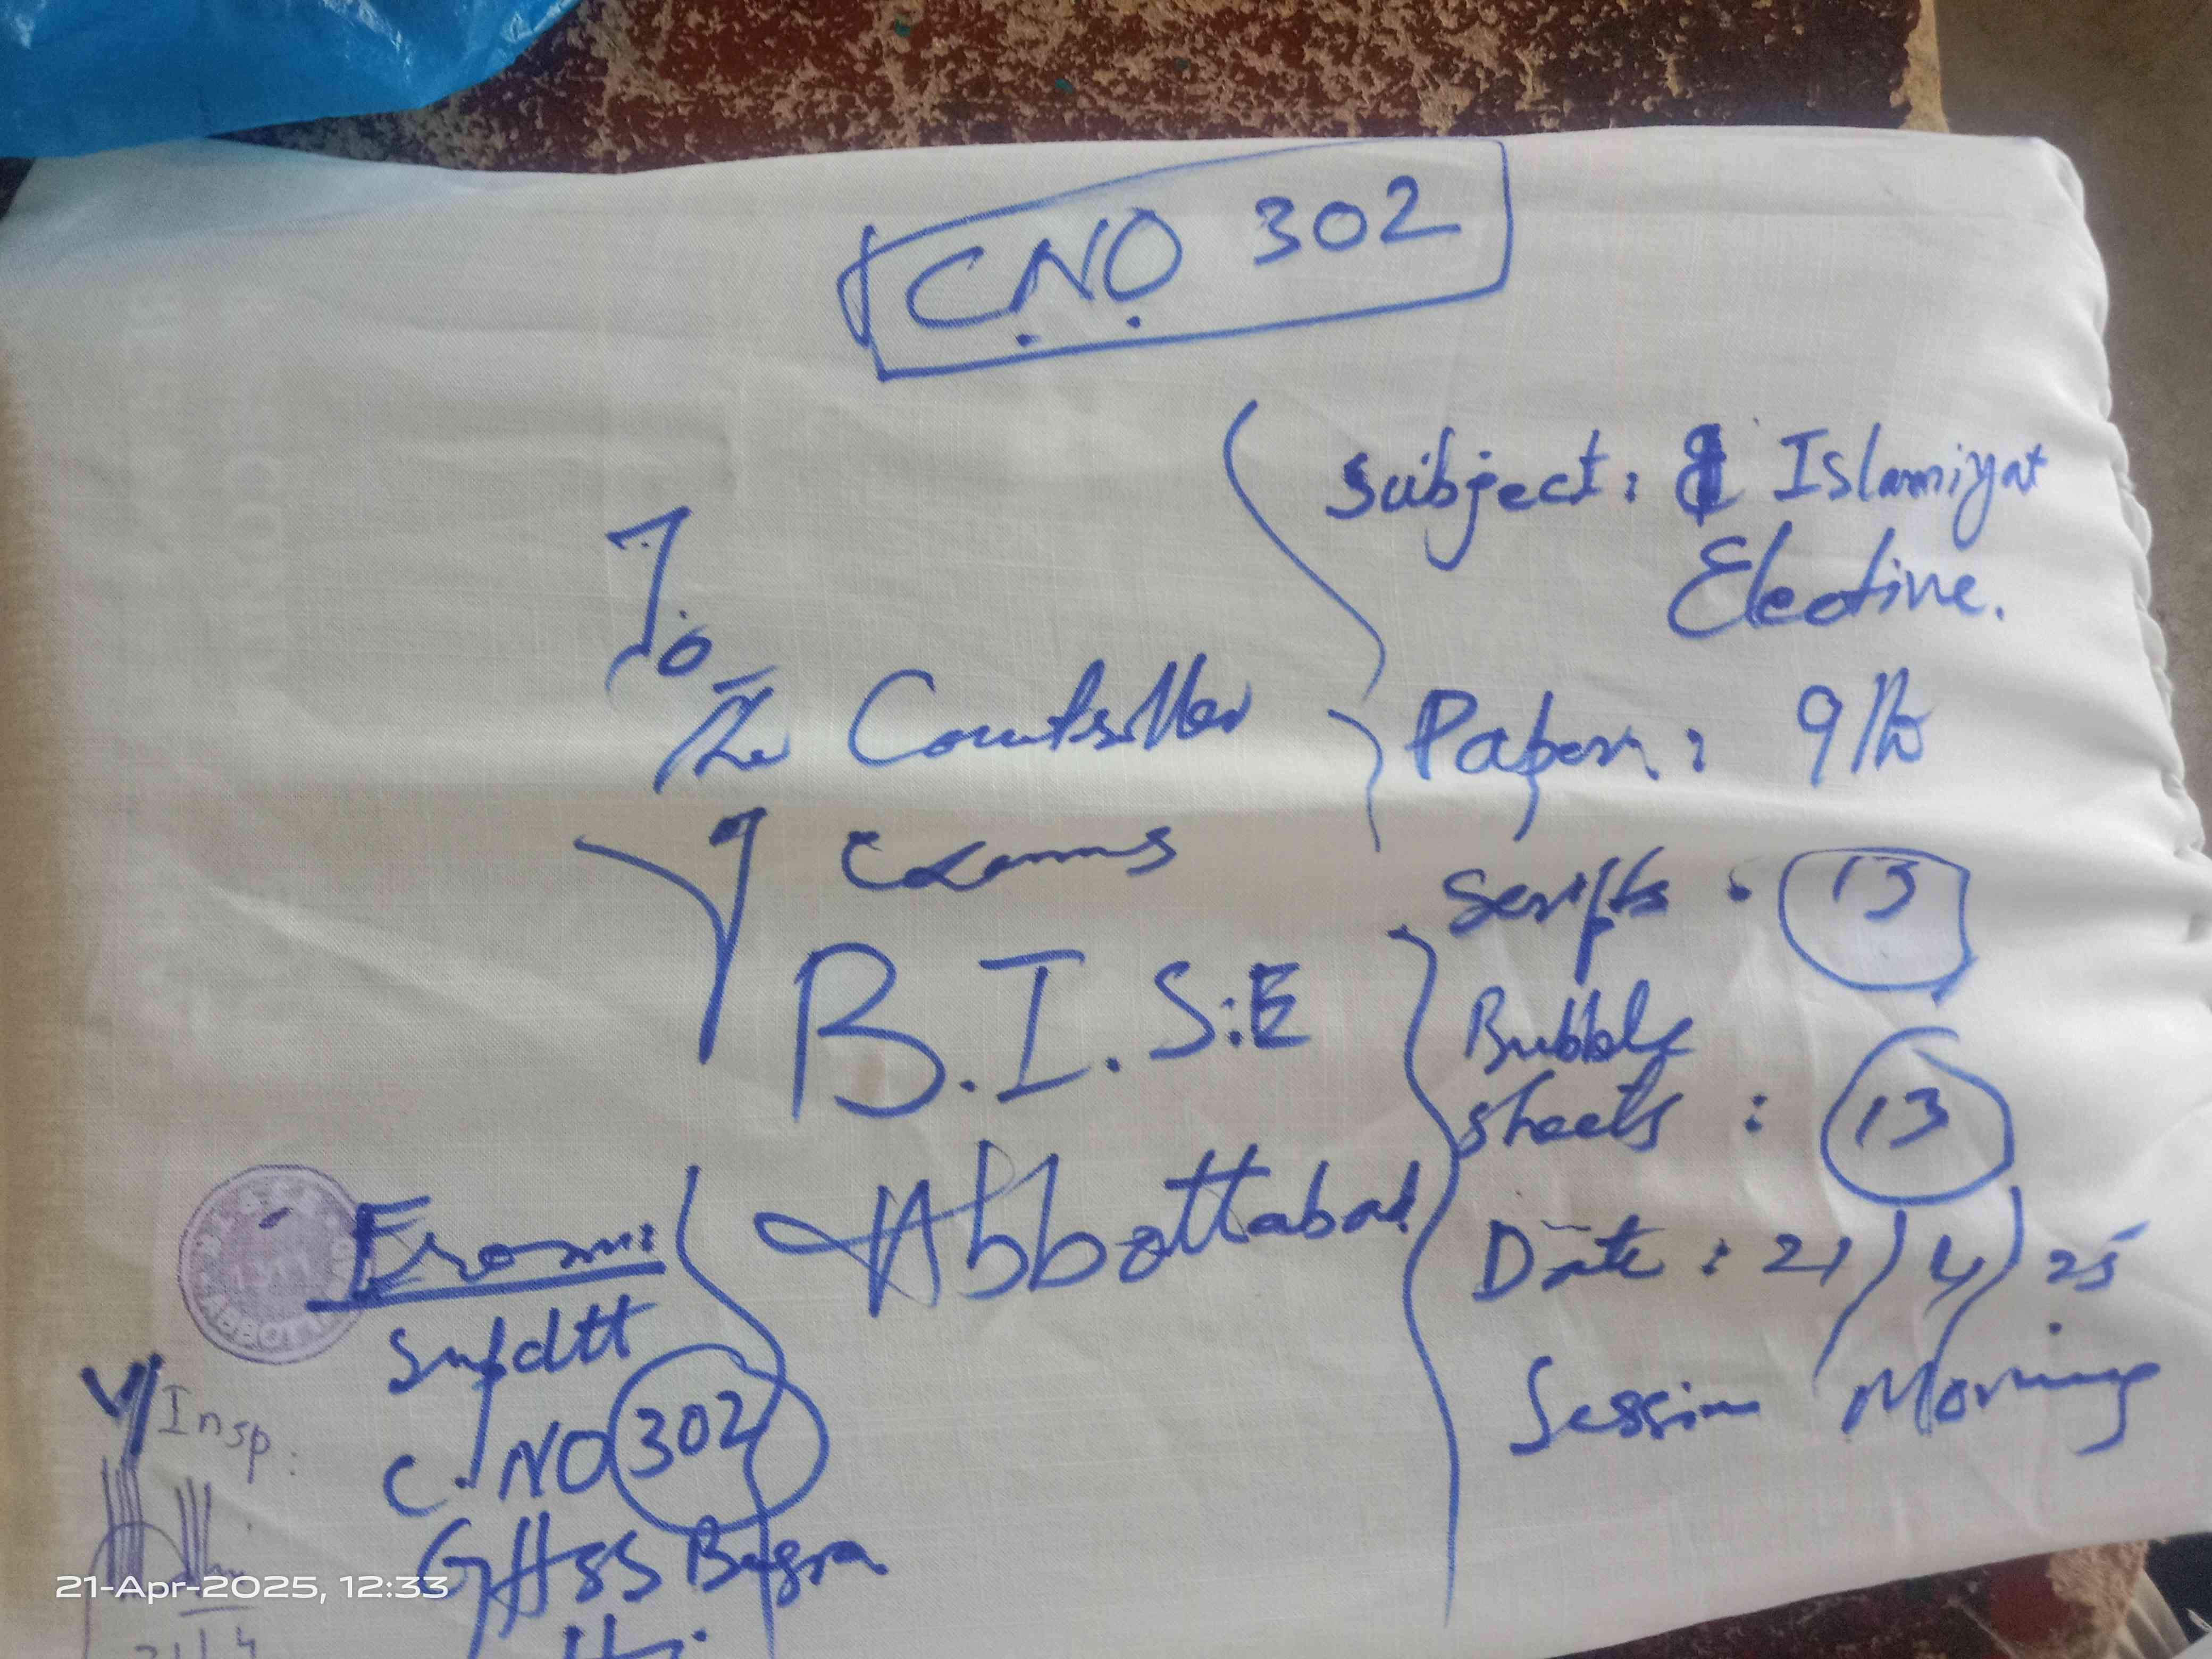 C.N.O 302
To
The Controller
Exams
B.I.S.E
Abbottabad
Subject: Islamiyat
Elective.
Paper: 9th
Scripts: 13
Bubble
sheets: 13
Date: 21/4/25
Session Morning
From:
Supdtt
C.NO 302
GHSS Bagra
Insp.
21-Apr-2025, 12:33